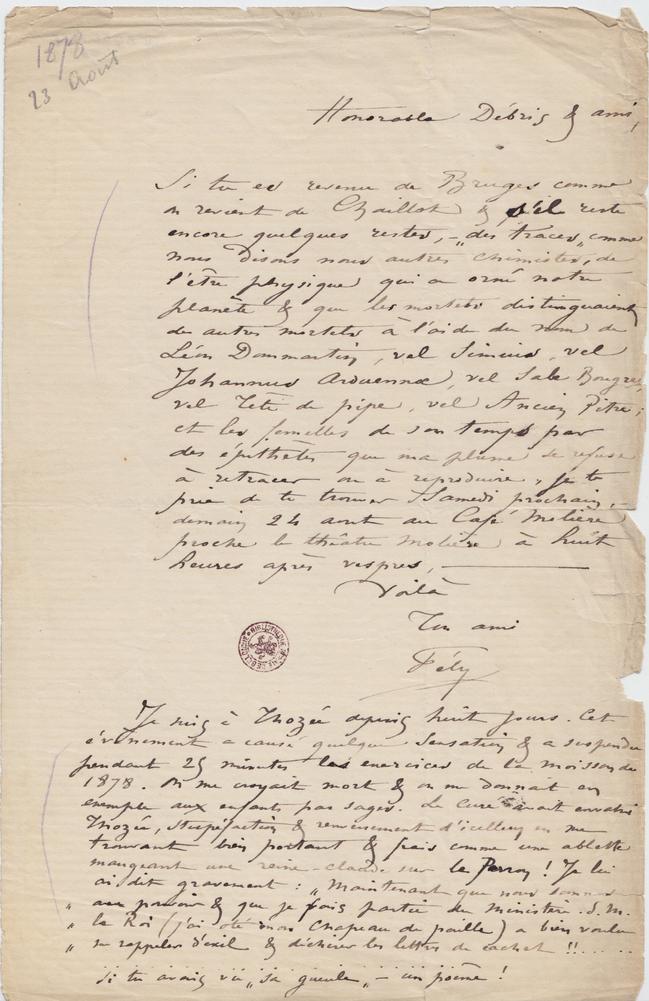 1878
23 Août
Honorable Débris & ami,
Si tu es revenu de Bruges comme
on revient de Chaillot & s'il reste
encore quelques restes, – „des traces„ comme
nous disons nous autres chimistes, de
l'être physique qui a orné notre
planète & que les mortels distinguaient
des autres mortels à l'aide du nom de
Léon Dommartin, vel Simius, vel
Johannus Arduennæ, vel Sale Bougre,
vel Tête de pipe, vel Ancien Pitre,
et les femelles de son temps par
des épithètes que ma plume se refuse
à retracer ou à reproduire, je te
prie de te trouver Samedi prochain,
demain 24 aout au Café Molière
proche le théâtre Molière à huit
heures après vespres, ———
Voilà
Ton ami
Fély
Je suis à Thozée depuis huit jours. Cet
événement a causé quelque sensation & a suspendu
pendant 25 minutes les exercices de la moisson de
1878. On me croyait mort & on me donnait en
exemple aux enfants pas sages. Le Curé envahi
Thozée, stupéfaction & renversement d'icelluy en me
trouvant bien portant & frais comme une ablette
mangeant une reine-claude sur le Perron ! Je lui
ai dit gravement : „Maintenant que nous sommes
„ au pouvoir & que je fais partie du Ministère. S. M.
„ le Roi (j'ai ôté mon chapeau de paille) a bien voulu
„ me rappeler d'exil & déchirer les lettres de cachet !! . . . .
Si tu avais vu „sa gueule„ – un poème !